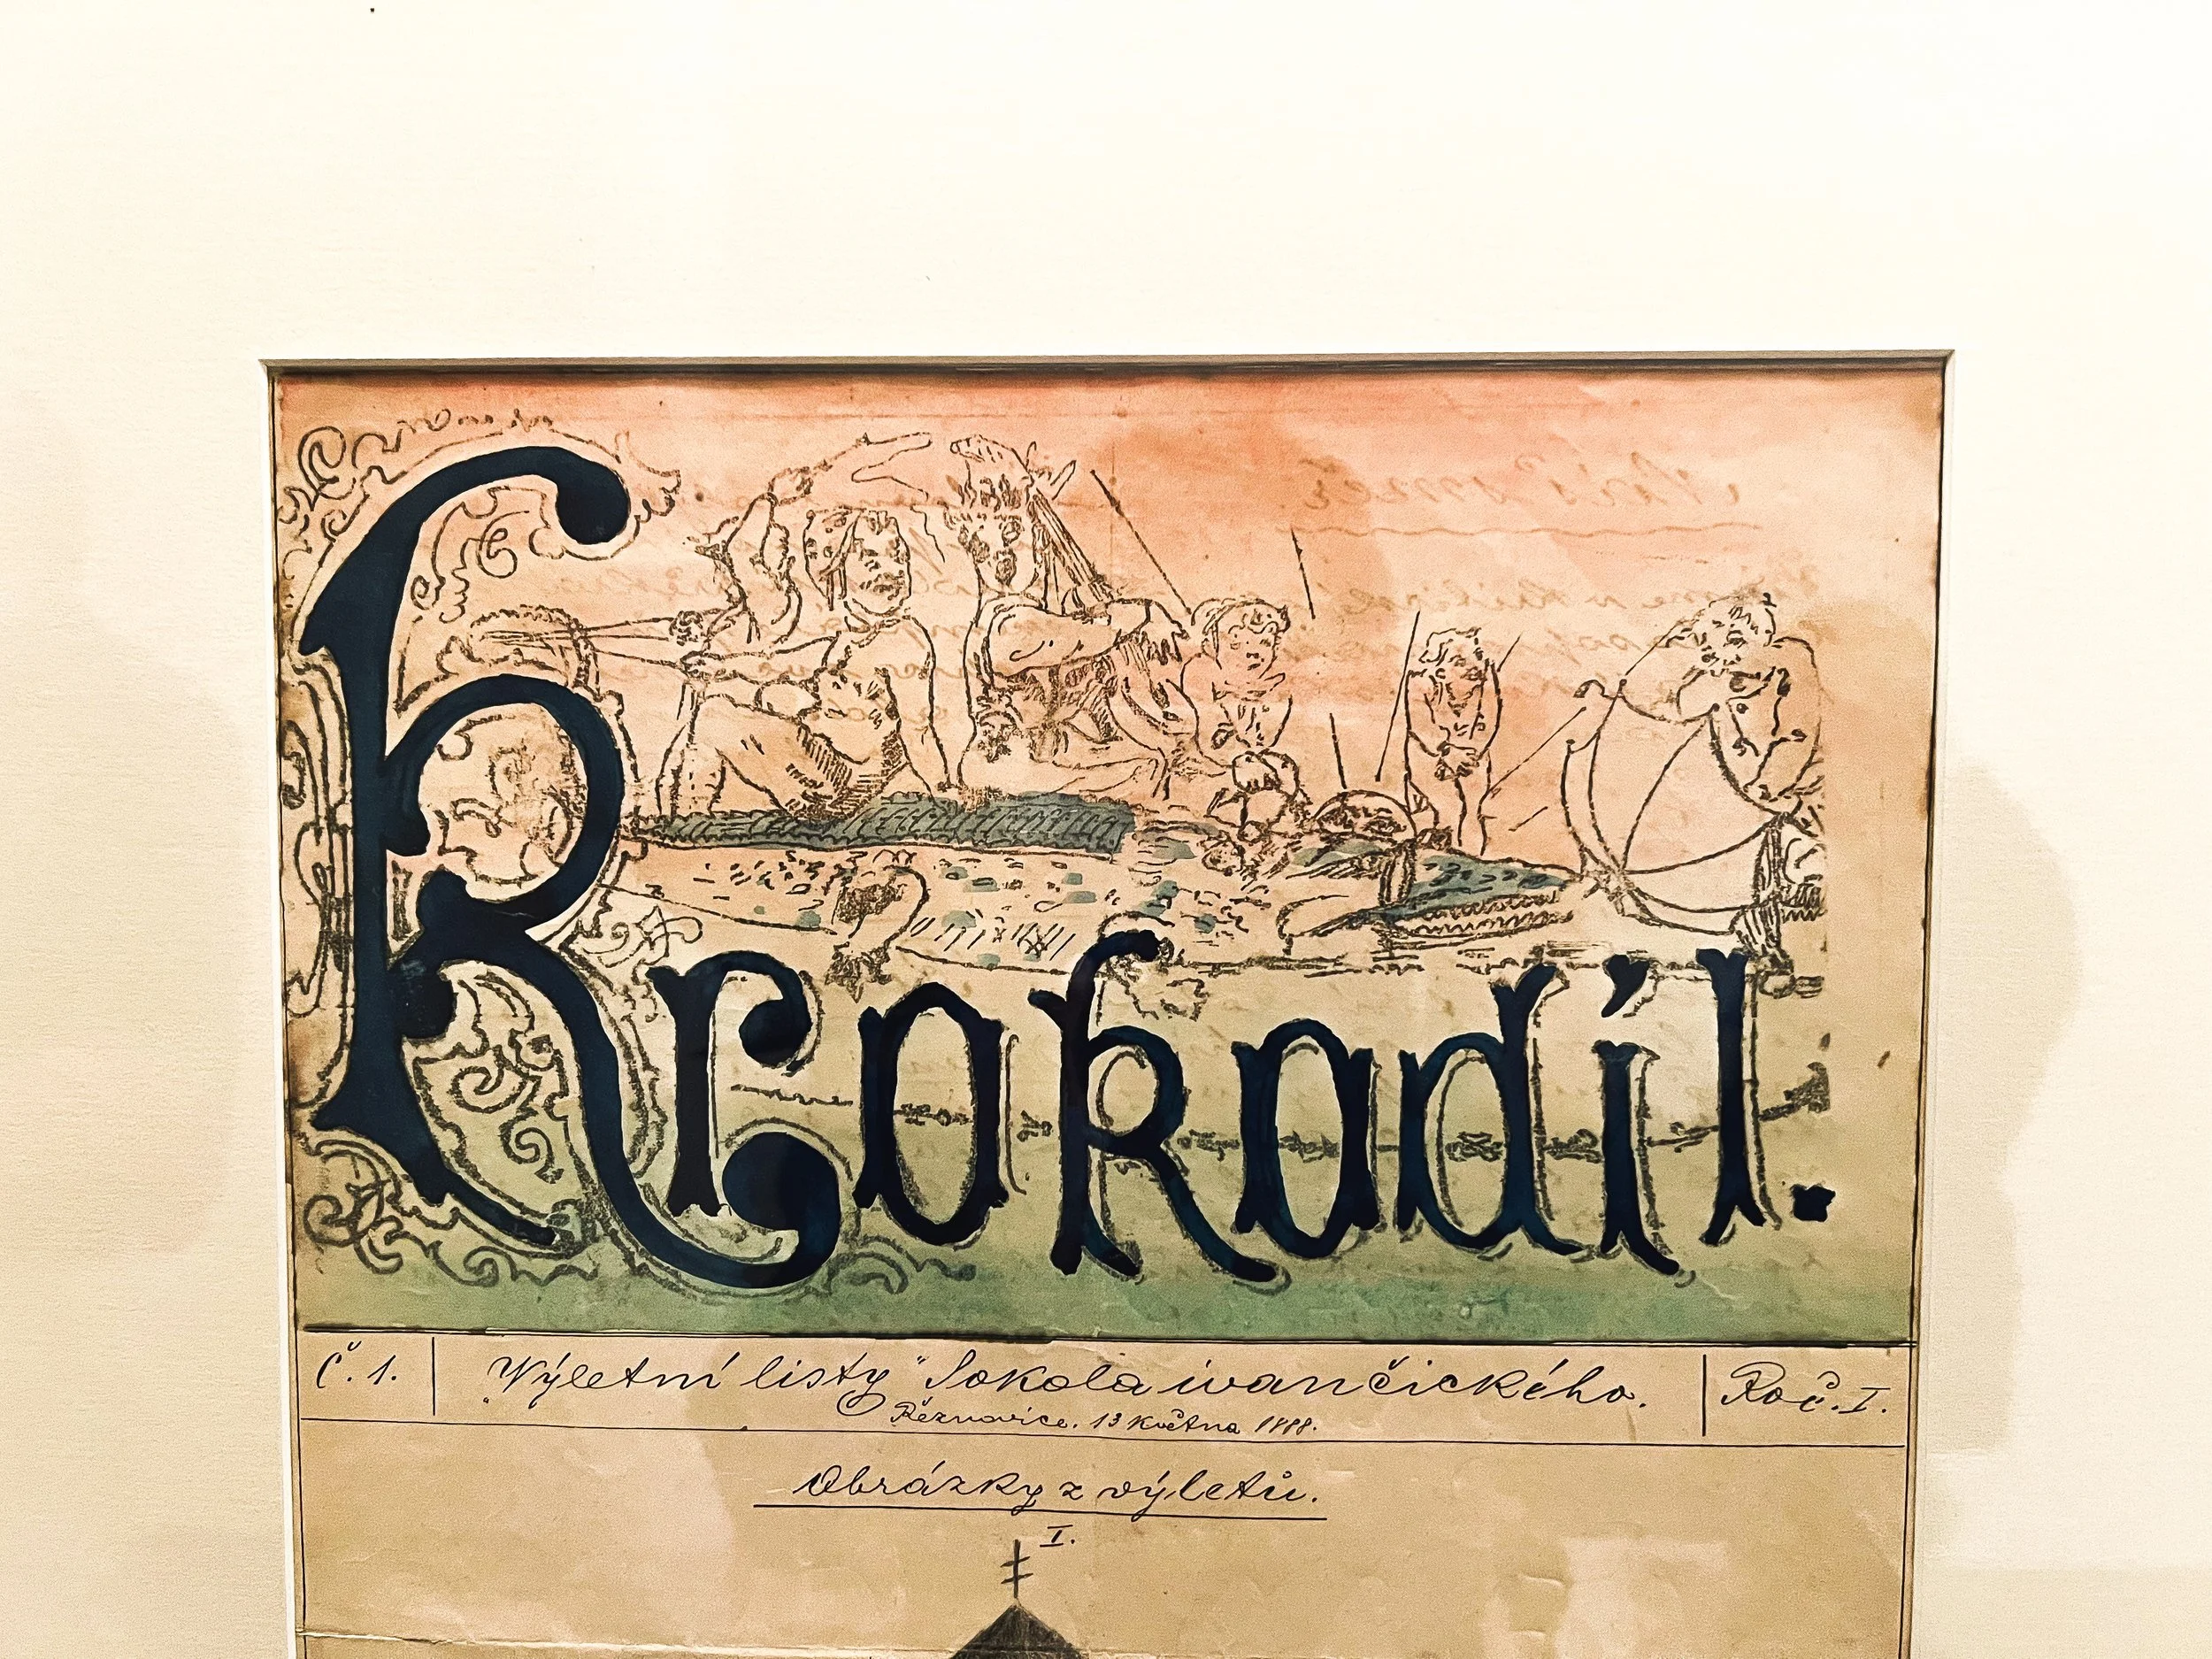 Krokodíl.
Č. 1.
„Výletní listy" Sokola ivančického.
Roč. I.
Řeznovice. 13 května 1888.
Obrázky z výletů.
I.